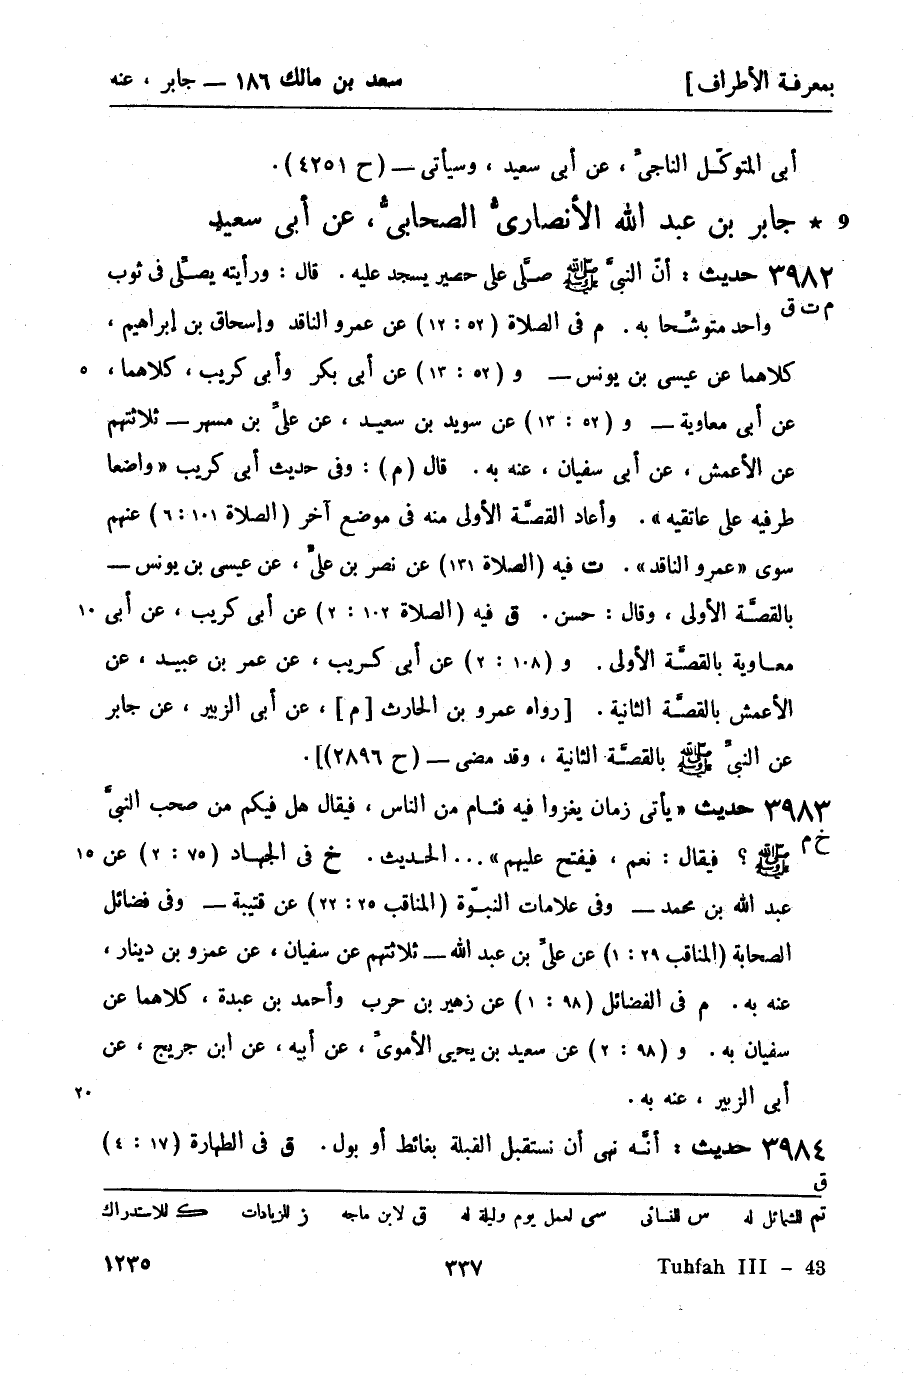 بمعرفـة الأطراف] سعد بن مالك ١٨٦ — جابر ، عنه
أبى المتوكّـل الناجىّ ، عن أبى سعيد ، وسيأتى — (ح ٤٢٥١).
9 ★ جابر بن عبد الله الأنصارىّ الصحابىّ ، عن أبى سعيد
٣٩٨٢ حديث : أنّ النبىَّ ﷺ صلَّى على حصير يسجد عليه . قال : ورأيته يصلَّى فى ثوب
م ت ق واحد متوشِّحا به . م فى الصلاة (٥٢ : ١٢) عن عمرو الناقد وإسحاق بن إبراهيم ،
كلاهما عن عيسى بن يونس — و (٥٢ : ١٣) عن أبى بكر وأبى كريب ، كلاهما ، ٥
عن أبى معاوية — و (٥٢ : ١٣) عن سويد بن سعيـد ، عن علىّ بن مسهر — ثلاثتهم
عن الأعمش ، عن أبى سفيان ، عنه به . قال (م) : وفى حديث أبى كريب «واضعا
طرفيه على عاتقيه» . وأعاد القصَّـة الأولى منه فى موضـع آخر (الصلاة ١٠١ : ٦) عنهم
سوى «عمرو الناقد» . ت فيه (الصلاة ١٣١) عن نصر بن علىّ ، عن عيسى بن يونس —
بالقصَّـة الأولى ، وقال : حسن . ق فيه (الصلاة ١٠٢ : ٢) عن أبى كريب ، عن أبى ١٠
معـاوية بالقصَّـة الأولى . و (١٠٨ : ٢) عن أبى كـريب ، عن عمر بن عبيـد ، عن
الأعمش بالقصَّـة الثانية . [رواه عمرو بن الحارث [م] ، عن أبى الزبير ، عن جابر
عن النبىّ ﷺ بالقصَّـة الثانية ، وقد مضى — (ح ٢٨٩٦)].
٣٩٨٣ حديث «يأتى زمان يغزوا فيه فئـام من الناس ، فيقال هل فيكم من صحب النبىَّ
خ م ﷺ ؟ فيقال : نعم ، فيفتح عليهم» ... الحـديث . خ فى الجهـاد (٧٥ : ٢) عن ١٥
عبد الله بن محمد — وفى علامات النبـوّة (المناقب ٢٥ : ٢٢) عن قتيبة — وفى فضائل
الصحابة (المناقب ٢٩ : ١) عن علىّ بن عبد الله — ثلاثتهم عن سفيان ، عن عمرو بن دينار ،
عنه به . م فى الفضائل (٩٨ : ١) عن زهير بن حرب وأحمد بن عبدة ، كلاهما عن
سفيان به . و (٩٨ : ٢) عن سعيد بن يحيى الأموىّ ، عن أبيه ، عن ابن جريج ، عن
أبى الزبير ، عنه به . ٢٠
٣٩٨٤ حديث : أنَّـه نهى أن نستقبل القبلة بغائط أو بول . ق فى الطهارة (١٧ : ٤)
ق
تم للشمائل له س للنسائى سى لعمل يوم وليلة له ق لابن ماجه ز للزيادات ك للاستدراك
١٢٣٥ ٣٣٧ Tuhfah III – 43